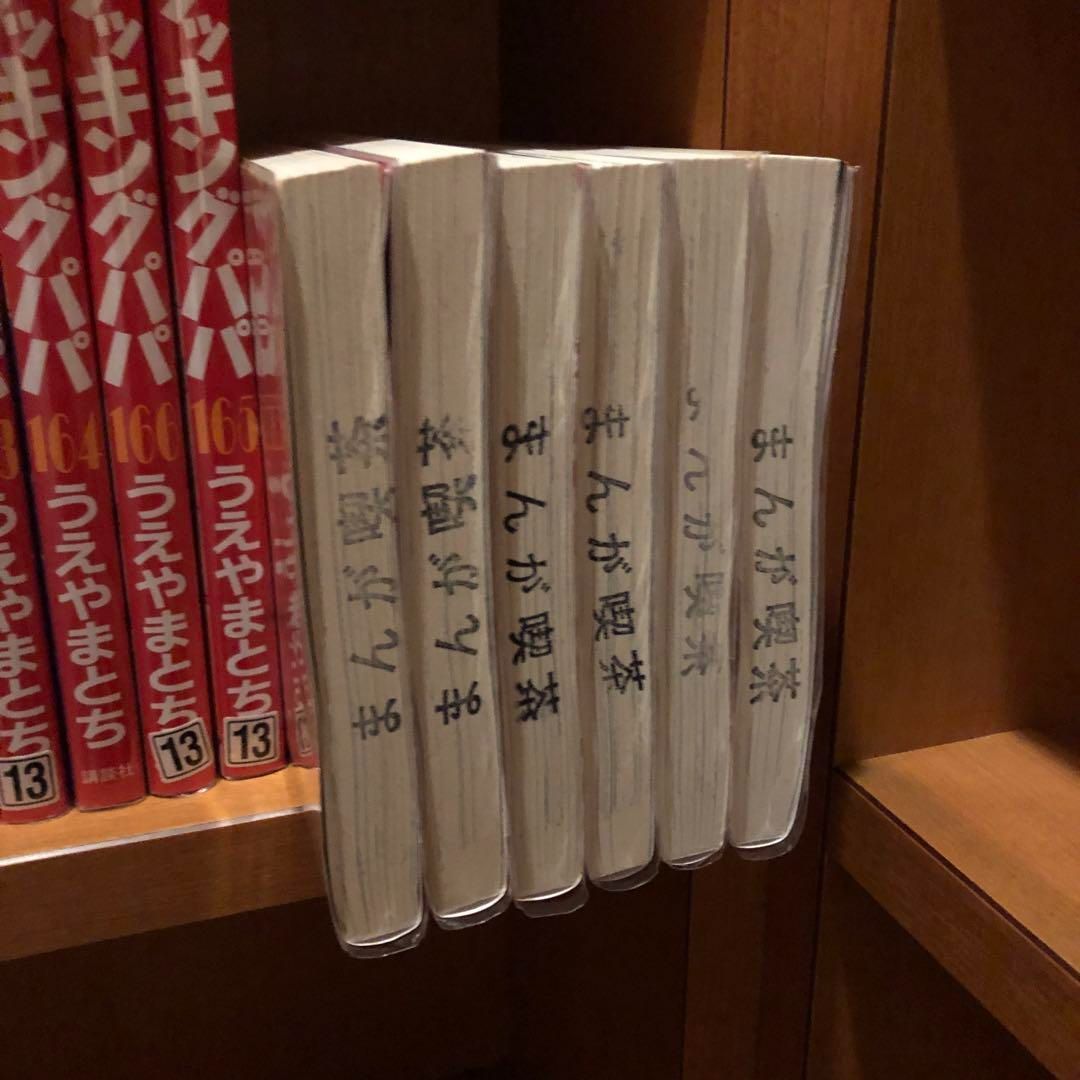 3 うえやまとち
13
ッキングパパ 164 うえやまとち
講談社
ッキングパパ 166 うえやまとち
13
ッキングパパ 165 うえやまとち
13
まんが喫茶
まんが喫茶
まんが喫茶
まんが喫茶
んが喫茶
まんが喫茶